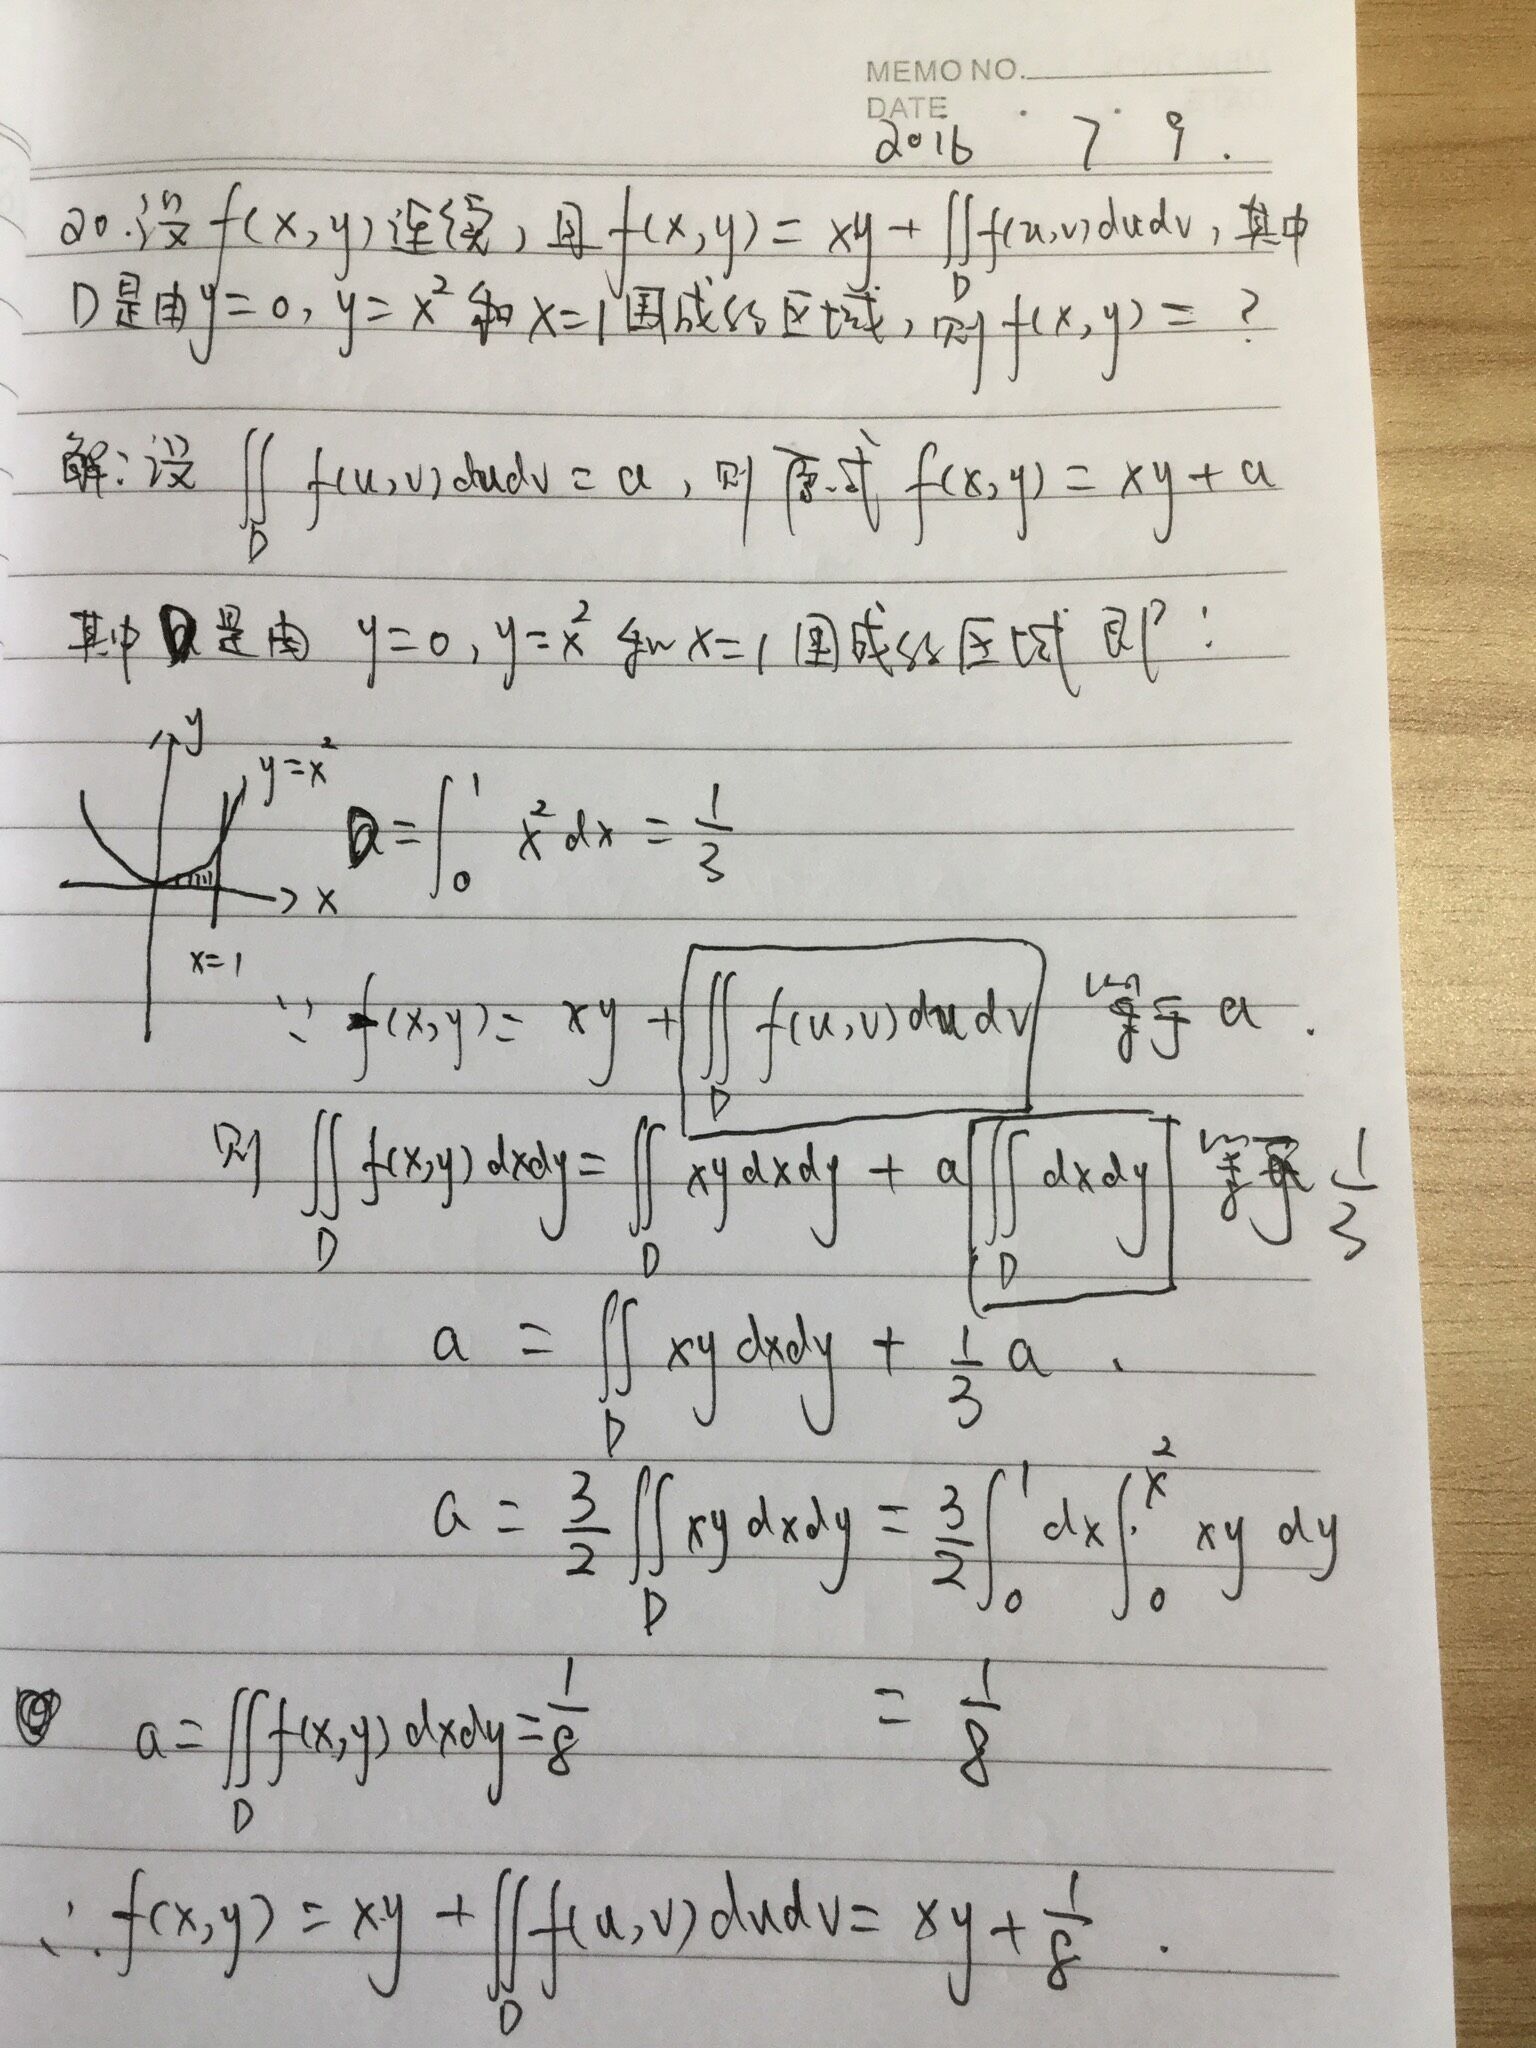 MEMO NO.
DATE
2016 7 9.
20.设f(x,y)连续,且f(x,y)=xy+∬_D f(u,v)dudv,其中
D是由y=0,y=x²和x=1围成的区域,则f(x,y)=?
解:设∬_D f(u,v)dudv=a,则原式f(x,y)=xy+a
其中D是由 y=0,y=x²和x=1围成的区域即:
y
y=x²
D=∫₀¹ x²dx=1/3
x
x=1
∵ f(x,y)=xy+∬_D f(u,v)dudv 等于 a.
则 ∬_D f(x,y)dxdy=∬_D xydxdy+a∬_D dxdy 等于 1/3
a=∬_D xydxdy+1/3 a.
a=3/2∬_D xydxdy=3/2∫₀¹dx∫₀^{x²} xy dy
a=∬_D f(x,y)dxdy=1/8 =1/8
∴f(x,y)=xy+∬_D f(u,v)dudv=xy+1/8.